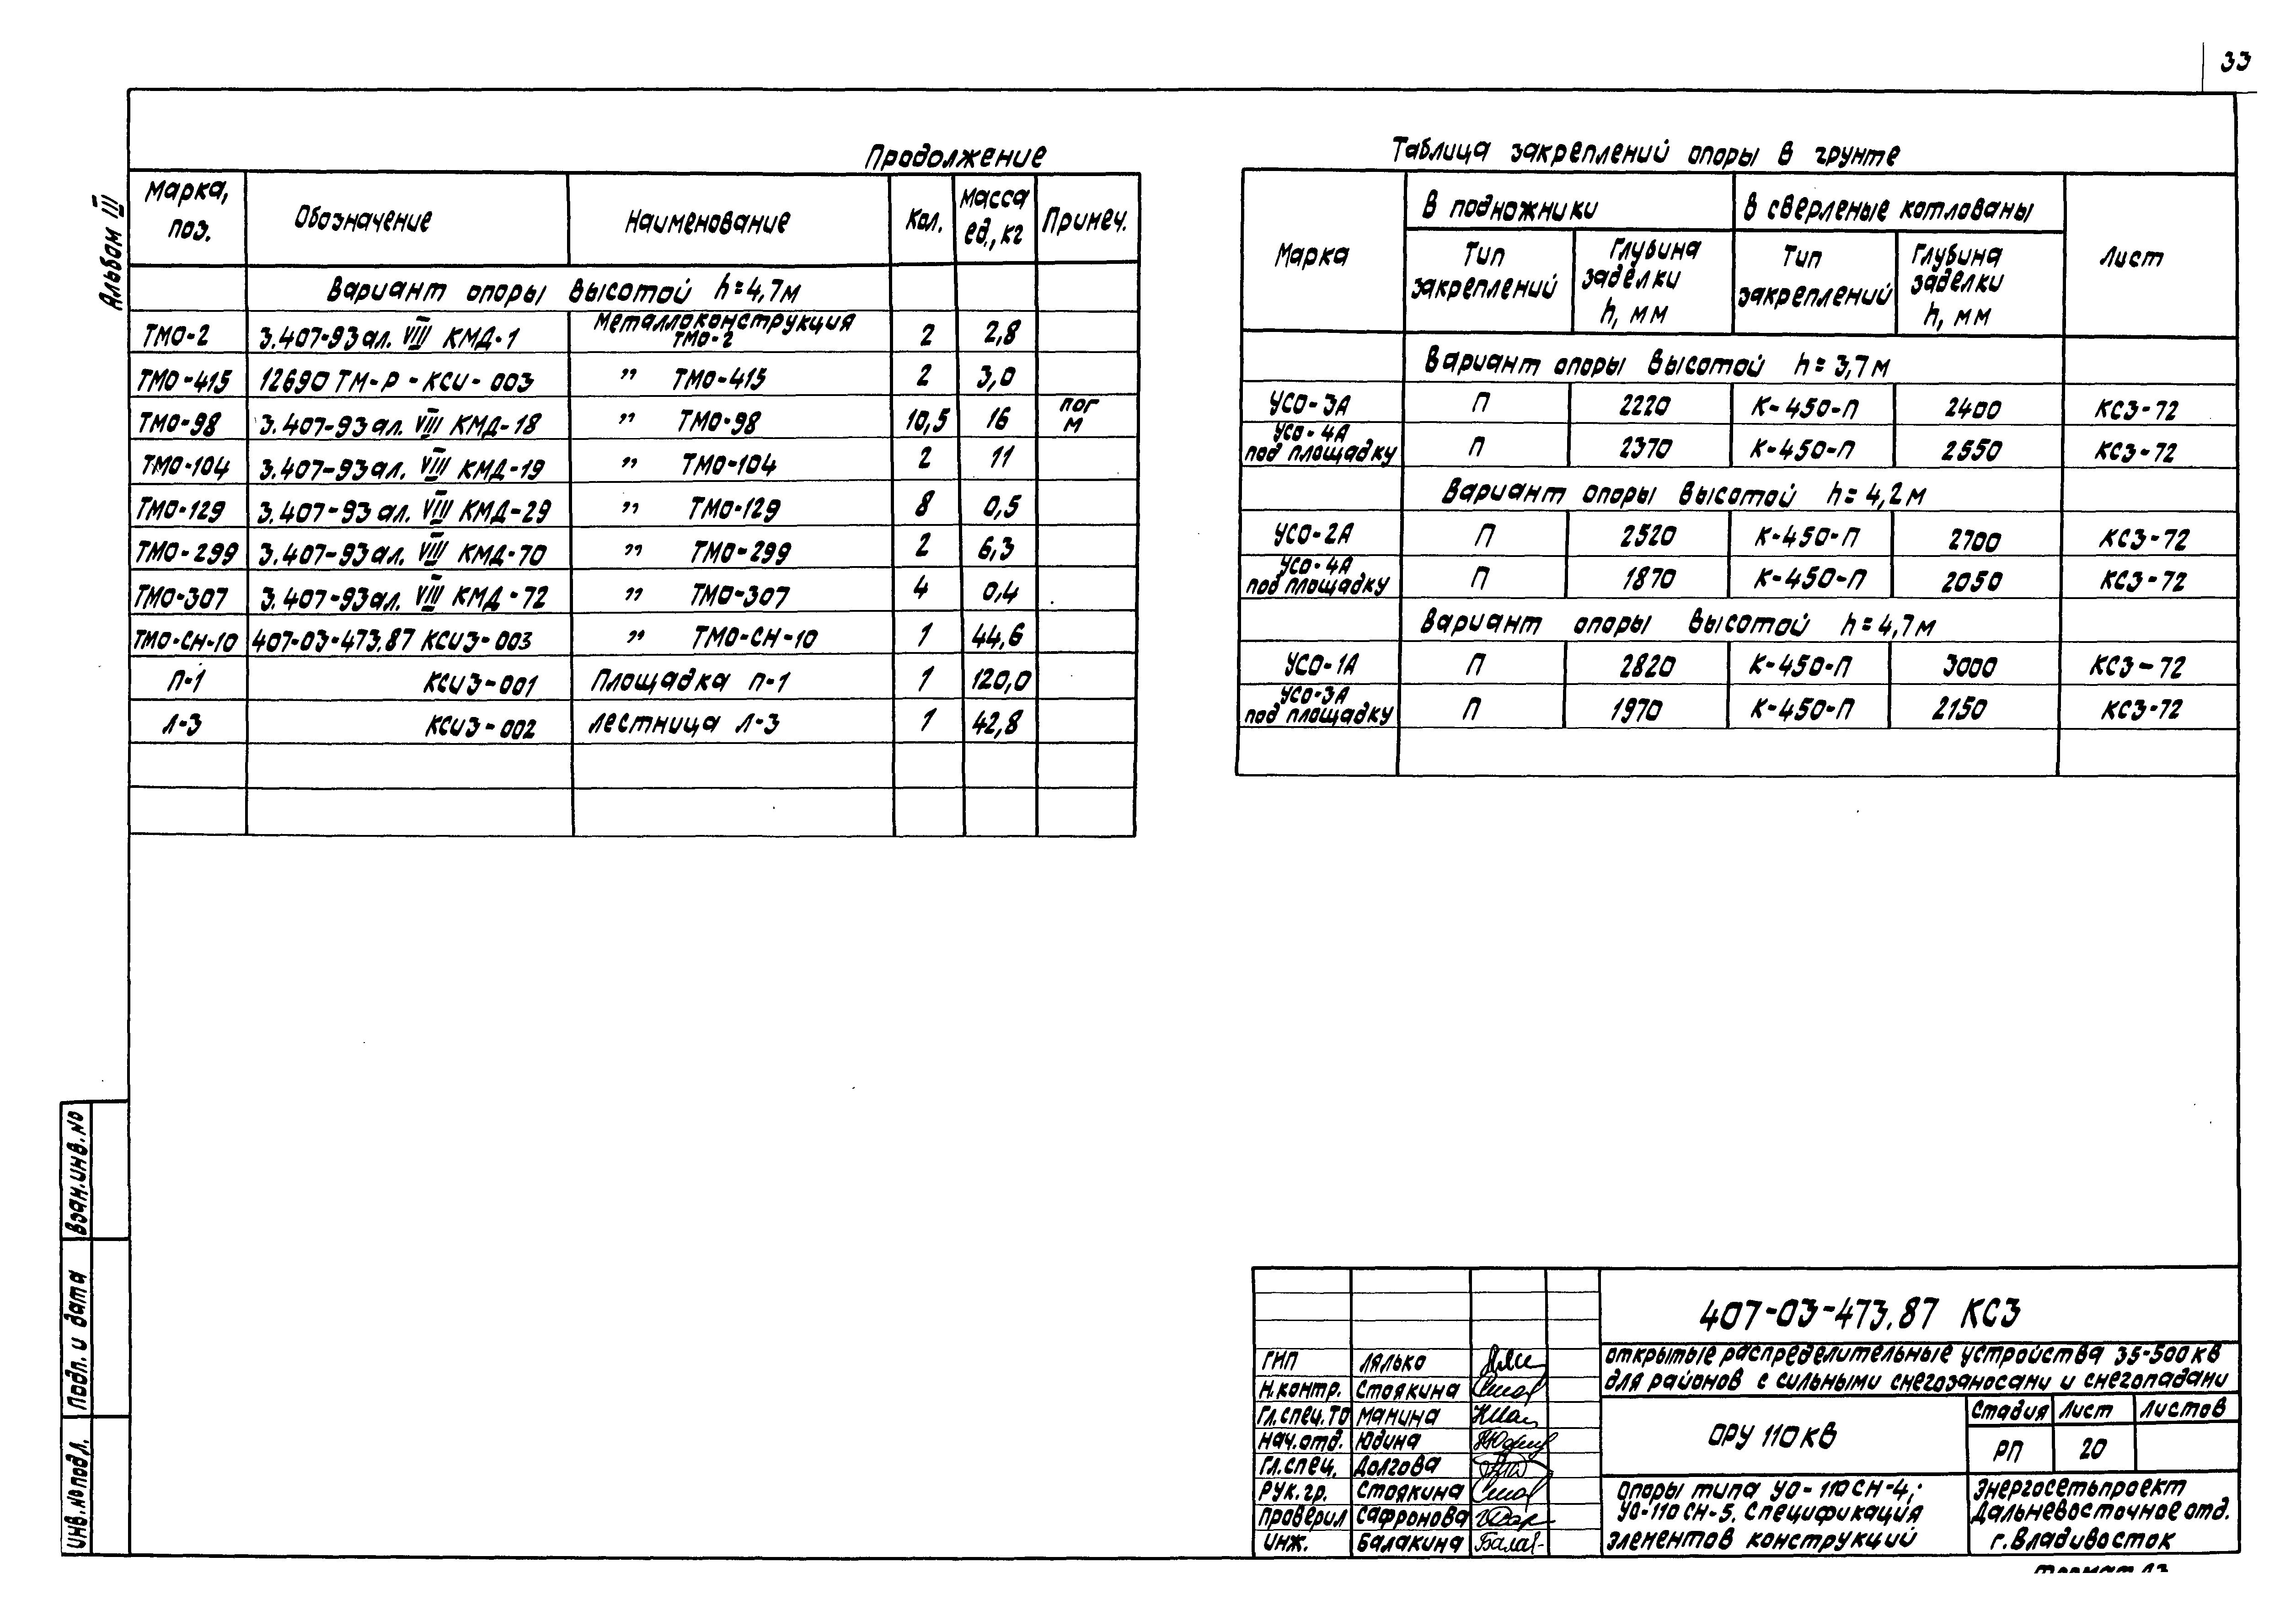 33
Альбом III
Продолжение
Марка, поз. Обозначение Наименование Кол. Масса ед., кг Примеч.
Вариант опоры высотой h=4,7м
ТМО-2 3.407-93 ал. VIII КМД-1 Металлоконструкция ТМО-2 2 2,8
ТМО-415 12690 ТМ-Р-КСИ-003 " ТМО-415 2 3,0
ТМО-98 3.407-93 ал. VIII КМД-18 " ТМО-98 10,5 16 пог м
ТМО-104 3.407-93 ал. VIII КМД-19 " ТМО-104 2 11
ТМО-129 3.407-93 ал. VIII КМД-29 " ТМО-129 8 0,5
ТМО-299 3.407-93 ал. VIII КМД-70 " ТМО-299 2 6,3
ТМО-307 3.407-93 ал. VIII КМД-72 " ТМО-307 4 0,4
ТМО-СН-10 407-03-473.87 КСИ3-003 " ТМО-СН-10 1 44,6
П-1 КСИ3-001 Площадка П-1 1 120,0
Л-3 КСИ3-002 Лестница Л-3 1 42,8
Таблица закреплений опоры в грунте
Марка В подножники В сверленые котлованы Лист
Тип закреплений Глубина заделки h, мм Тип закреплений Глубина заделки h, мм
Вариант опоры высотой h=3,7м
УСО-3А П 2220 К-450-П 2400 КС3-72
УСО-4А под площадку П 2370 К-450-П 2550 КС3-72
Вариант опоры высотой h=4,2м
УСО-2А П 2520 К-450-П 2700 КС3-72
УСО-4А под площадку П 1870 К-450-П 2050 КС3-72
Вариант опоры высотой h=4,7м
УСО-1А П 2820 К-450-П 3000 КС3-72
УСО-3А под площадку П 1970 К-450-П 2150 КС3-72
Взам.инв.№
Подп. и дата
Инв.№подл.
407-03-473.87 КС3
Открытые распределительные устройства 35-500кв
для районов с сильными снегозаносами и снегопадами
ГИП Лялько
Н.контр. Стоякина
Гл.спец.ТО Манина
Нач.отд. Юдина
Гл.спец. Долгова
Рук.гр. Стоякина
Проверил Сафронова
Инж. Балакина
ОРУ 110кв
Стадия Лист Листов
РП 20
Опоры типа УО-110СН-4;
УО-110СН-5. Спецификация
элементов конструкций
Энергосетьпроект
Дальневосточное отд.
г.Владивосток